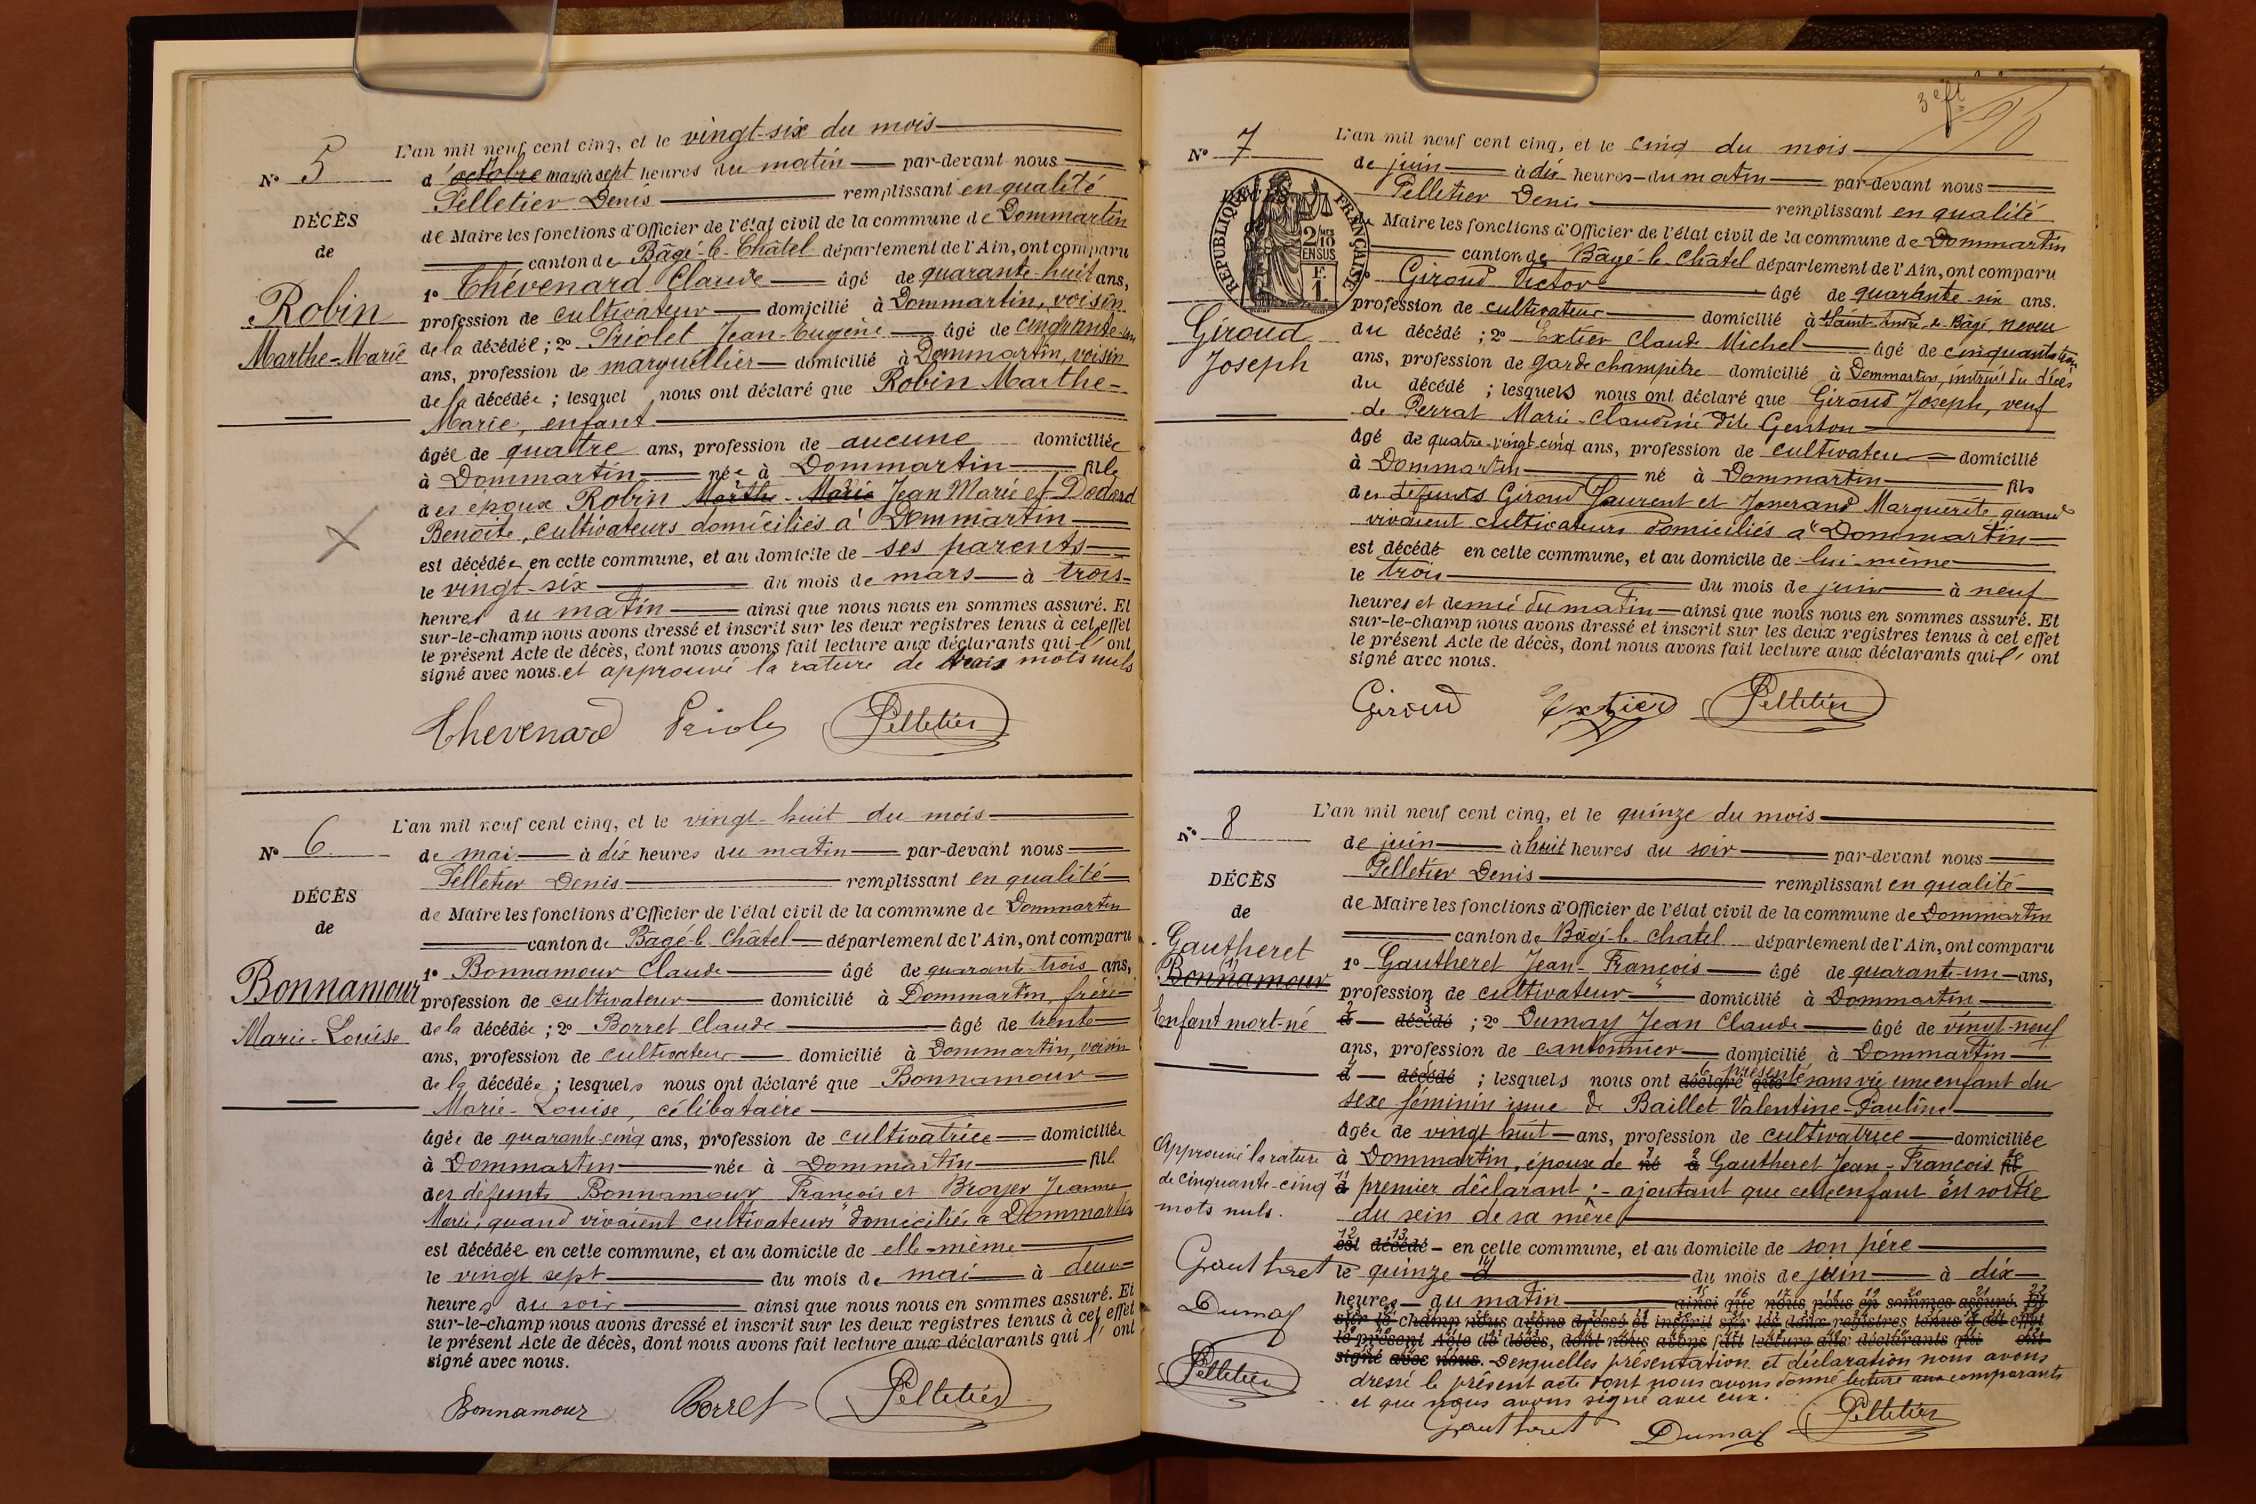 N° 5
DÉCÈS
de
Robin
Marthe-Marie
L'an mil neuf cent cinq, et le vingt-six du mois
d'octobre mars à sept heures du matin par-devant nous
Pelletier Denis remplissant en qualité
de Maire les fonctions d'Officier de l'état civil de la commune de Dommartin
canton de Bâgé-le-Châtel département de l'Ain, ont comparu
1° Thévenard Claude âgé de quarante-huit ans,
profession de cultivateur domicilié à Dommartin, voisin
de la décédée ; 2° Priolet Jean-Eugène âgé de cinquante-un
ans, profession de marguillier domicilié à Dommartin, voisin
de la décédée ; lesquel nous ont déclaré que Robin Marthe-
Marie, enfant
âgée de quattre ans, profession de aucune domiciliée
à Dommartin née à Dommartin fille
des époux Robin Marthe-Marie Jean Marie et Dodard
Benoite, cultivateurs domiciliés à Dommartin
est décédée en cette commune, et au domicile de ses parents
le vingt-six du mois de mars à trois
heures du matin ainsi que nous nous en sommes assuré. Et
sur-le-champ nous avons dressé et inscrit sur les deux registres tenus à cet effet
le présent Acte de décès, dont nous avons fait lecture aux déclarants qui l'ont
signé avec nous. et approuvé la rature de trois mots nuls
Thevenard Priolet Pelletier
N° 6
DÉCÈS
de
Bonnamour
Marie-Louise
L'an mil neuf cent cinq, et le vingt-huit du mois
de mai à dix heures du matin par-devant nous
Pelletier Denis remplissant en qualité
de Maire les fonctions d'Officier de l'état civil de la commune de Dommartin
canton de Bâgé-le-Châtel département de l'Ain, ont comparu
1° Bonnamour Claude âgé de quarante trois ans,
profession de cultivateur domicilié à Dommartin, frère
de la décédée ; 2° Borret Claude âgé de trente
ans, profession de cultivateur domicilié à Dommartin, voisin
de la décédée ; lesquels nous ont déclaré que Bonnamour
Marie-Louise, célibataire
âgée de quarante-cinq ans, profession de cultivatrice domiciliée
à Dommartin née à Dommartin fille
des défunts Bonnamour François et Broyer Jeanne
Marie, quand vivaient cultivateurs domiciliés à Dommartin
est décédée en cette commune, et au domicile de elle-même
le vingt sept du mois de mai à deux
heures du soir ainsi que nous nous en sommes assuré. Et
sur-le-champ nous avons dressé et inscrit sur les deux registres tenus à cet effet
le présent Acte de décès, dont nous avons fait lecture aux déclarants qui l'ont
signé avec nous.
Bonnamour Borret Pelletier
N° 7
RÉPUBLIQUE FRANÇAISE
2/10 EN SUS
1 F.
Giroud
Joseph
L'an mil neuf cent cinq, et le cinq du mois
de juin à dix heures du matin par-devant nous
Pelletier Denis remplissant en qualité
Maire les fonctions d'Officier de l'état civil de la commune de Dommartin
canton de Bâgé-le-Châtel département de l'Ain, ont comparu
Giroud Victor âgé de quarante-six ans.
profession de cultivateur domicilié à Saint-André-de-Bâgé, neveu
du décédé ; 2° Extier Claude Michel âgé de cinquante trois
ans, profession de garde champêtre domicilié à Dommartin, instruit du décès
du décédé ; lesquels nous ont déclaré que Giroud Joseph, veuf
de Perrat Marie-Claudine dite Genton
âgé de quatre-vingt-cinq ans, profession de cultivateur domicilié
à Dommartin né à Dommartin fils
des défunts Giroud Laurent et Jonerand Marguerite quand
vivaient cultivateurs domiciliés à Dommartin
est décédé en cette commune, et au domicile de lui-même
le trois du mois de juin à neuf
heures et demie du matin ainsi que nous nous en sommes assuré. Et
sur-le-champ nous avons dressé et inscrit sur les deux registres tenus à cet effet
le présent Acte de décès, dont nous avons fait lecture aux déclarants qui l'ont
signé avec nous.
Giroud Extier Pelletier
N° 8
DÉCÈS
de
Gautheret
Bonnamour
Enfant mort-né
L'an mil neuf cent cinq, et le quinze du mois
de juin à huit heures du soir par-devant nous
Pelletier Denis remplissant en qualité
de Maire les fonctions d'Officier de l'état civil de la commune de Dommartin
canton de Bâgé-le-Chatel département de l'Ain, ont comparu
1° Gautheret Jean-François âgé de quarante-un ans,
profession de cultivateur domicilié à Dommartin
d décédé ; 2° Dumay Jean Claude âgé de vingt-neuf
ans, profession de cantonnier domicilié à Dommartin
d décédé ; lesquels nous ont déclaré que présenté sans vie une enfant du
sexe féminin issue de Baillet Valentine-Pauline
âgée de vingt huit ans, profession de cultivatrice domiciliée
à Dommartin, épouse de né à Gautheret Jean-François fil
d premier déclarant ;- ajoutant que cette enfant est sortie
du sein de sa mère
est décédé en cette commune, et au domicile de son père
le quinze d du mois de juin à dix
heures du matin ainsi que nous nous en sommes assuré. Et
sur-le-champ nous avons dressé et inscrit sur les deux registres tenus à cet effet
le présent Acte de décès, dont nous avons fait lecture aux déclarants qui ont
signé avec nous. Desquelles présentation et déclaration nous avons
dressé le présent acte dont nous avons donné lecture aux comparants
et que nous avons signé avec eux.
Gautheret Dumay Pelletier
Approuvé la rature
de cinquante-cinq
mots nuls.
Gautheret
Dumay
Pelletier